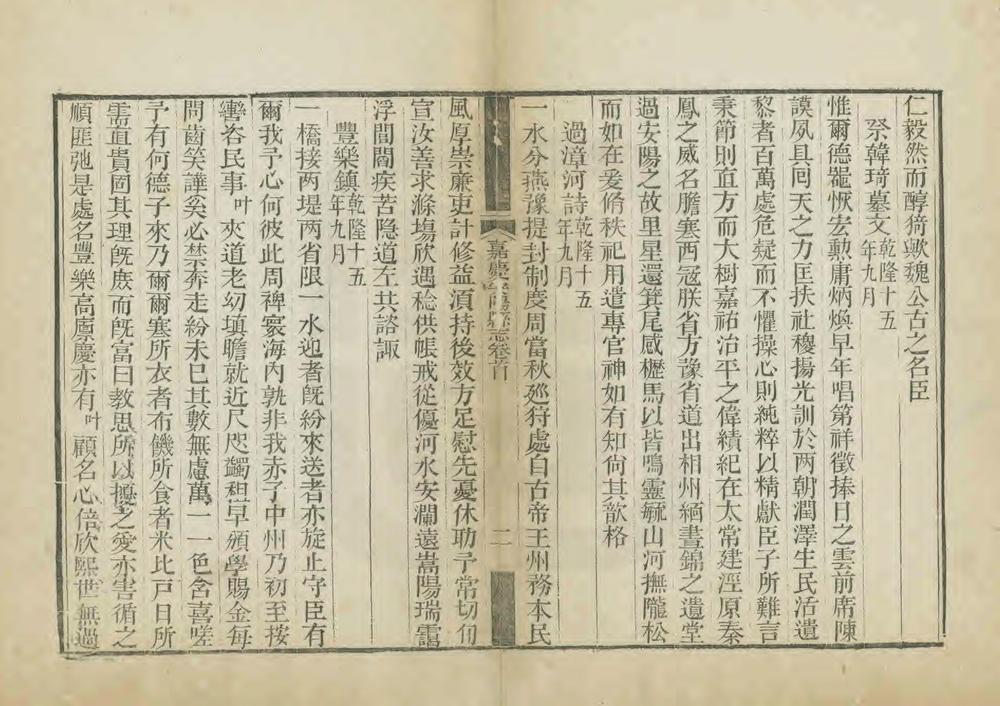 仁毅然而醇猗歟魏公古之名臣
祭韓琦墓文乾隆十五年九月
惟爾德器恢宏勲庸炳煥早年唱第祥徵捧日之雲前席陳
謨夙具回天之力匡扶社稷揚光訓於两朝潤澤生民活遺
黎者百萬處危疑而不懼操心則純粹以精獻臣子所難言
秉節則直方而大樹嘉祐治平之偉績紀在太常建涇原秦
鳳之威名膽寒西冦朕省方豫省道出相州緬晝錦之遺堂
過安陽之故里星還箕尾感櫪馬以皆鳴靈毓山河撫隴松
而如在爰脩秩祀用遣專官神如有知尙其歆格
過漳河詩乾隆十五年九月
一水分燕豫提封制度周當秋廵狩處自古帝王州務本民
嘉慶安陽縣志卷首
二
風厚崇亷吏計修益滇持後效方足慰先憂休助予常切旬
宣汝善求滌塲欣遇稔供帳戒從優河水安瀾遠嵩陽瑞靄
浮閭閻疾苦隐道左共諮諏
豐樂鎮乾隆十五年九月
一橋接两堤两省限一水迎者旣紛來送者亦旋止守臣有
爾我予心何彼此周禆寰海內孰非我赤子中州乃初至按
轡咨民事叶夾道老幼塡瞻就近尺咫蠲租早頒學賜金每
問齒笑譁奚必禁奔走紛未已其數無慮萬一一色含喜嗟
予有何德子來乃爾爾寒所衣者布饑所食者米比戸日所
需直貴固其理旣庶而旣富曰教思所以擾之愛亦害循之
順匪弛是處名豐樂高廪慶亦有叶顧名心倍欣熙世無過